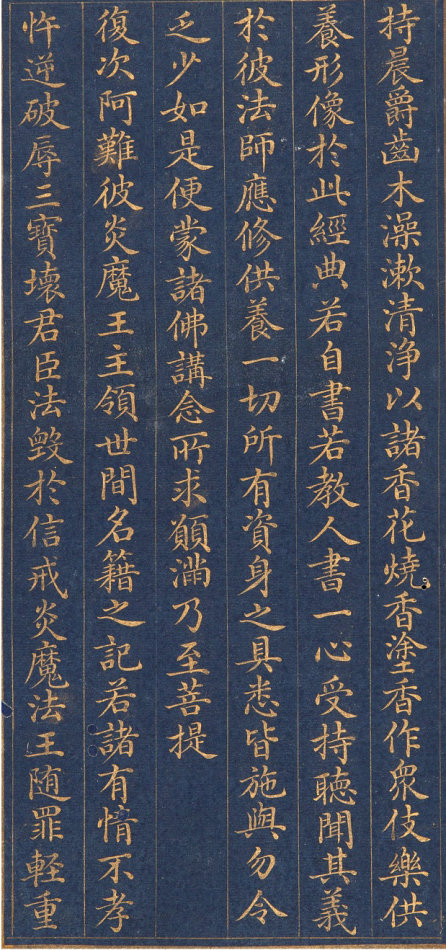 持晨爵齒木澡漱清淨以諸香花燒香塗香作眾伎樂供
養形像於此經典若自書若教人書一心受持聽聞其義
於彼法師應修供養一切所有資身之具悉皆施與勿令
乏少如是便蒙諸佛講念所求願滿乃至菩提
復次阿難彼炎魔王主領世間名籍之記若諸有情不孝
忤逆破辱三寶壞君臣法毀於信戒炎魔法王随罪軽重